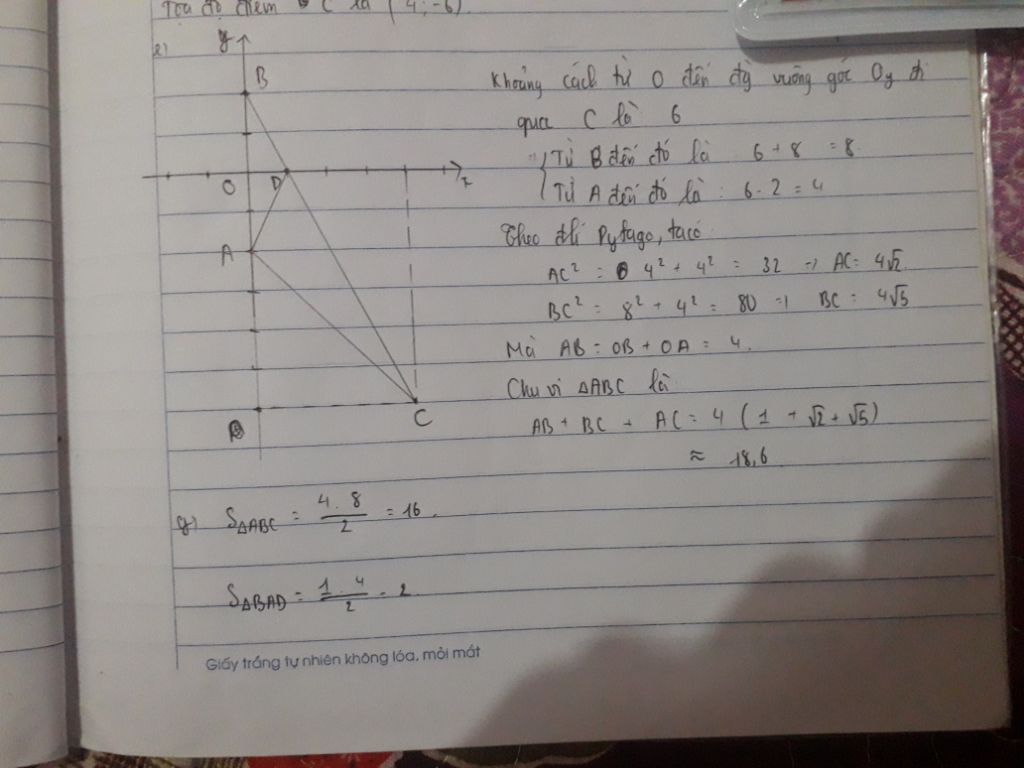 Tọa độ điểm C là (4; -6)
e)
y
B
O
D
x
A
C
Khoảng cách từ O đến đg vuông góc Oy đi
qua C là 6
Từ B đến đó là 6 + 8 = 8
Từ A đến đó là : 6 - 2 = 4
Theo đlí Pytago, ta có
AC² = 4² + 4² = 32 => AC = 4√2
BC² = 8² + 4² = 80 => BC = 4√5
Mà AB = OB + OA = 4.
Chu vi ΔABC là
AB + BC + AC = 4 (1 + √2 + √5)
≈ 18,6
g) SΔABC = 4 . 8 / 2 = 16.
SΔBAD = 1 . 4 / 2 = 2
Giấy trắng tự nhiên không lóa, mỏi mắt